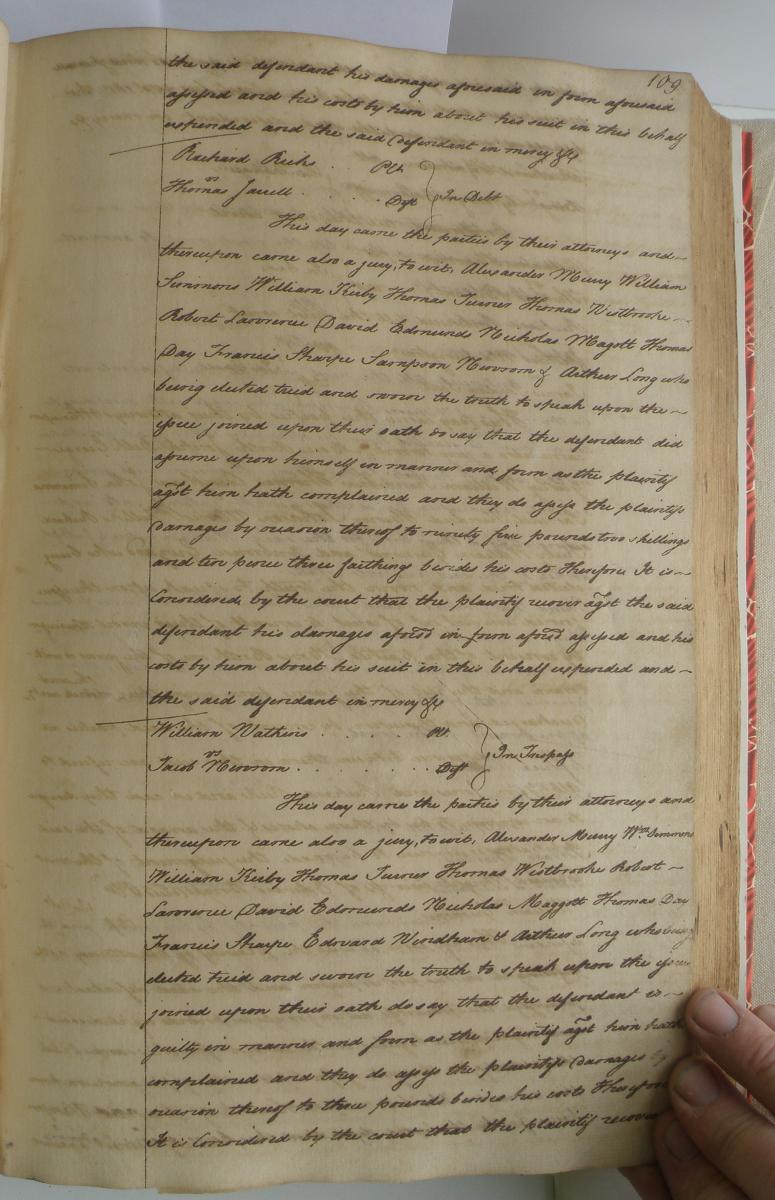 109
the said defendant his damages aforesaid in form aforesaid
assessed and his costs by him about his suit in this behalf
expended and the said defendant in mercy &c
Richard Ricks . Plt.
vs In Debt
Thomas Jarrell . . . . . Deft
This day came the parties by their attorneys and
thereupon came also a jury, to wit, Alexander Murry William
Simmons William Kirby Thomas Turner Thomas Westbrooke
Robert Lawrence David Edmunds Nicholas Magott Thomas
Day Francis Sharpe Sampson Newsom & Arthur Long who
being elected tried and sworn the truth to speak upon the
issue joined upon their oath do say that the defendant did
assume upon himself in manner and form as the plaintif
agst him hath complained and they do assess the plaintifs
damages by occasion thereof to ninety five pounds two shillings
and ten pence three farthings besides his costs Therefore It is
Considered by the court that the plaintif recover agst the said
defendant his damages aforsd in form aforsd assessed and his
costs by him about his suit in this behalf expended and
the said defendant in mercy &c
William Mathews . . . . . Plt.
vs In Trespass
Jacob Newsom . . . . . . . Deft
This day came the parties by their attorneys and
thereupon came also a jury, to wit, Alexander Murry Wm. Simmons
William Kirby Thomas Turner Thomas Westbrooke Robert
Lawrence David Edmunds Nicholas Maggott Thomas Day
Francis Sharpe Edward Windham & Arthur Long who being
elected tried and sworn the truth to speak upon the issue
joined upon their oath do say that the defendant is
guilty in manner and form as the plaintif agst him hath
complained and they do assess the plaintifs damages by
occasion thereof to three pounds besides his costs Therefore
It is Considered by the court that the plaintif recover